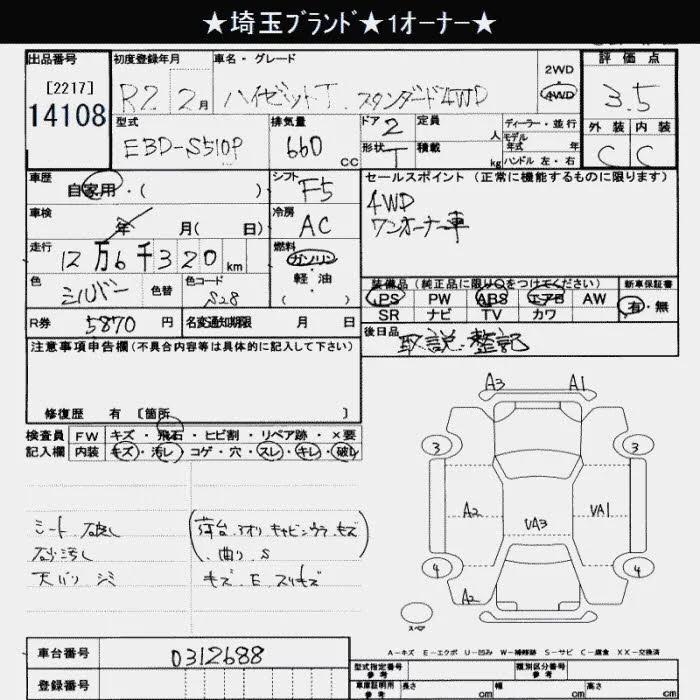 ★埼玉ﾌﾞﾗﾝﾄﾞ★1オーナー★
出品番号
[2217]
14108
初度登録年月
R2 2月
車名・グレード
ハイゼットT.スタンダード4WD
2WD
4WD
評価点
3.5
外装 内装
C C
型式
EBD-S510P
排気量
660 CC
ドア 2
形状 T
定員 人
積載 kg
ディーラー・並行
モデル
年式 年
ハンドル 左・右
車歴
自家用・( )
シフト F5
セールスポイント (正常に機能するものに限ります)
4WD
ワンオーナー車
車検 年 月( 日)
冷房 AC
走行
12万6千320km
燃料
ガソリン
軽・油
( )
色
シルバー
色替
色コード
S28
装備品(純正品に限り○をつけてください)
新車保証書
PS PW ABS エアB AW
SR ナビ TV カワ
有・無
R券 5870 円
名変通知期限 月 日
後日品
取説.整記
注意事項申告欄(不具合内容等は具体的に記入して下さい)
修復歴 有 [箇所 ]
検査員
記入欄
FW キズ・飛石・ヒビ割・リペア跡・×要
内装 キズ・汚レ・コゲ・穴・スレ・キレ・破レ
シート 破レ
砂汚レ
天バリ シミ
(荷台.アオリ キャビンウラ キズ
.曲り.S)
キズ.E.スリキズ
A3 A1
3 3
A2 VA3 VA1
4 4
A2
スペア
A－キズ E－エクボ U－凹み W－補修跡 S－サビ C－腐食 XX－交換済
車台番号 0312688
登録番号
型式指定番号
参考
類別区分番号
参考
車庫証明用
参考
長さ cm 幅 cm 高さ cm